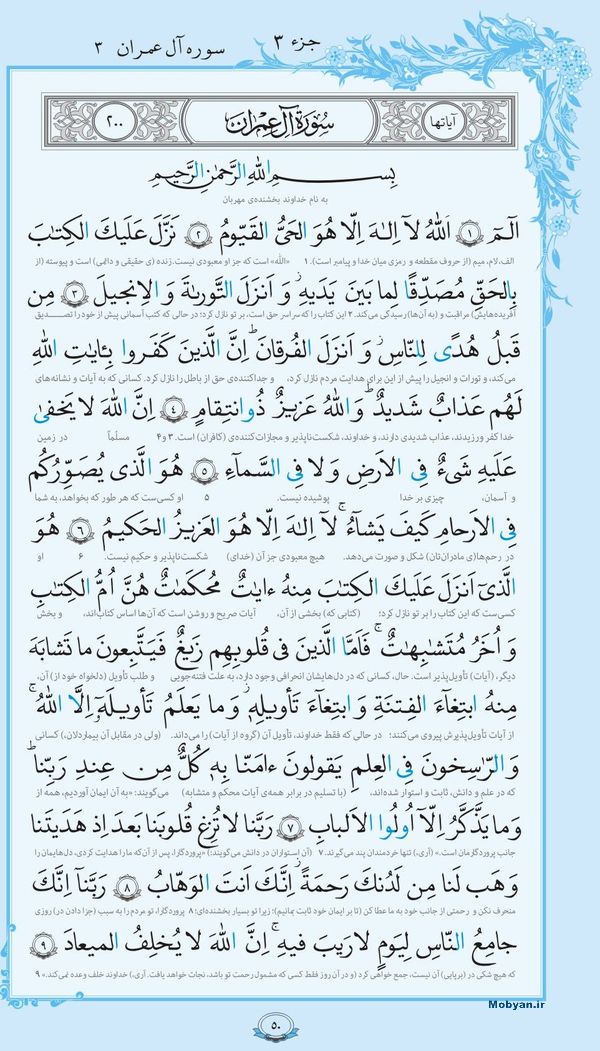 جزء ۳
سوره آل عمران ۳
آیاتها
سُورَةُ آلِ عِمْرَان
۲۰۰
بِسمِ اللهِ الرَّحمٰنِ الرَّحیمِ
به نام خداوند بخشنده‌ی مهربان
الٓمٓ ۱ اَللهُ لآ اِلٰهَ اِلّا هُوَ الحَیُّ القَیّومُ ۲ نَزَّلَ عَلَیكَ الكِتٰبَ
الف، لام، میم (از حروف مقطعه و رمزی میان خدا و پیامبر است). ۱ «الله» است که جز او معبودی نیست. زنده (ی حقیقی و دائمی) است و پیوسته (از
بِالحَقِّ مُصَدِّقًا لِما بَینَ یَدَیهِ وَ اَنزَلَ التَّورىٰةَ وَ الاِنجیلَ ۳ مِن
آفریده‌هایش) مراقبت و (به آن‌ها) رسیدگی می‌کند. ۲ این کتاب را که سراسر حق است، بر تو نازل کرد؛ در حالی که کتب آسمانی پیش از خود را تصدیق
قَبلُ هُدًى لِلنّاسِ وَ اَنزَلَ الفُرقانَ ۗ اِنَّ الَّذینَ كَفَروا بِـٔایٰتِ اللهِ
می‌کند، و تورات و انجیل را پیش از این برای هدایت مردم نازل کرد، و جداکننده‌ی حق از باطل را نازل کرد. کسانی که به آیات و نشانه‌های
لَهُم عَذابٌ شَدیدٌ ۗ وَ اللهُ عَزیزٌ ذُو انتِقامٍ ۴ اِنَّ اللهَ لا یَخفىٰ
خدا کفر ورزیدند، عذاب شدیدی دارند، و خداوند، شکست‌ناپذیر و مجازات‌کننده‌ی (کافران) است. ۳ و ۴ مسلّماً در زمین
عَلَیهِ شَیءٌ فِی الاَرضِ وَ لا فِی السَّمآءِ ۵ هُوَ الَّذی یُصَوِّرُكُم
و آسمان، چیزی بر خدا پوشیده نیست. ۵ او کسی‌ست که هر طور که بخواهد، به شما
فِی الاَرحامِ كَیفَ یَشآءُ ۚ لآ اِلٰهَ اِلّا هُوَ العَزیزُ الحَكیمُ ۶ هُوَ
در رحم‌ها(ی مادران‌تان) شکل و صورت می‌دهد. هیچ معبودی جز آن (خدای) شکست‌ناپذیر و حکیم نیست. ۶ او
الَّذیٓ اَنزَلَ عَلَیكَ الكِتٰبَ مِنهُ ءایٰتٌ مُحكَمٰتٌ هُنَّ اُمُّ الكِتٰبِ
کسی‌ست که این کتاب را بر تو نازل کرد؛ (کتابی که) بخشی از آن، آیات صریح و روشن است که آن‌ها اساس کتاب‌اند، و بخش
وَ اُخَرُ مُتَشٰبِهٰتٌ ۚ فَاَمَّا الَّذینَ فی قُلوبِهِم زَیغٌ فَیَتَّبِعونَ ما تَشابَهَ
دیگر، (آیات) تأویل‌پذیر است. حال، کسانی که در دل‌هایشان انحرافی وجود دارد، به علت فتنه‌جویی و طلب تأویل (دلخواه خود از) آن،
مِنهُ ابتِغآءَ الفِتنَةِ وَ ابتِغآءَ تَأویلِهٖ ۗ وَ ما یَعلَمُ تَأویلَهٗٓ اِلَّا اللهُ ۚ
از آیات تأویل‌پذیرش پیروی می‌کنند؛ در حالی که فقط خداوند، تأویل آن (گروه از آیات) را می‌داند. (ولی در مقابل آن بیماردلان،) کسانی
وَ الرّٰسِخونَ فِی العِلمِ یَقولونَ ءامَنّا بِهٖ كُلٌّ مِن عِندِ رَبِّنا ۗ
که در علم و دانش، ثابت و استوار شده‌اند، (با تسلیم در برابر همه‌ی آیات محکم و متشابه) می‌گویند: «به آن ایمان آوردیم، همه از
وَ ما یَذَّكَّرُ اِلّآ اُولُوا الاَلبابِ ۷ رَبَّنا لا تُزِغ قُلوبَنا بَعدَ اِذ هَدَیتَنا
جانب پروردگارمان است.» (آری،) تنها خردمندان پند می‌گیرند. ۷ (آن استواران در دانش می‌گویند:) «پروردگارا، پس از آن‌که ما را هدایت کردی، دل‌هایمان را
وَ هَب لَنا مِن لَدُنكَ رَحمَةً ۚ اِنَّكَ اَنتَ الوَهّابُ ۸ رَبَّنآ اِنَّكَ
منحرف نکن و رحمتی از جانب خود به ما عطا کن (تا بر ایمان خود ثابت بمانیم)؛ زیرا تو بسیار بخشنده‌ای؛ ۸ پروردگارا، تو مردم را به سبب (جزا دادن در) روزی
جامِعُ النّاسِ لِیَومٍ لا رَیبَ فیهِ ۚ اِنَّ اللهَ لا یُخلِفُ المیعادَ ۹
که هیچ شکی در (برپایی) آن نیست، جمع خواهی کرد (و در آن روز فقط کسی که مشمول رحمت تو باشد، نجات خواهد یافت. آری،) خداوند خلف وعده نمی‌کند.» ۹
Mobyan.ir
۵۰